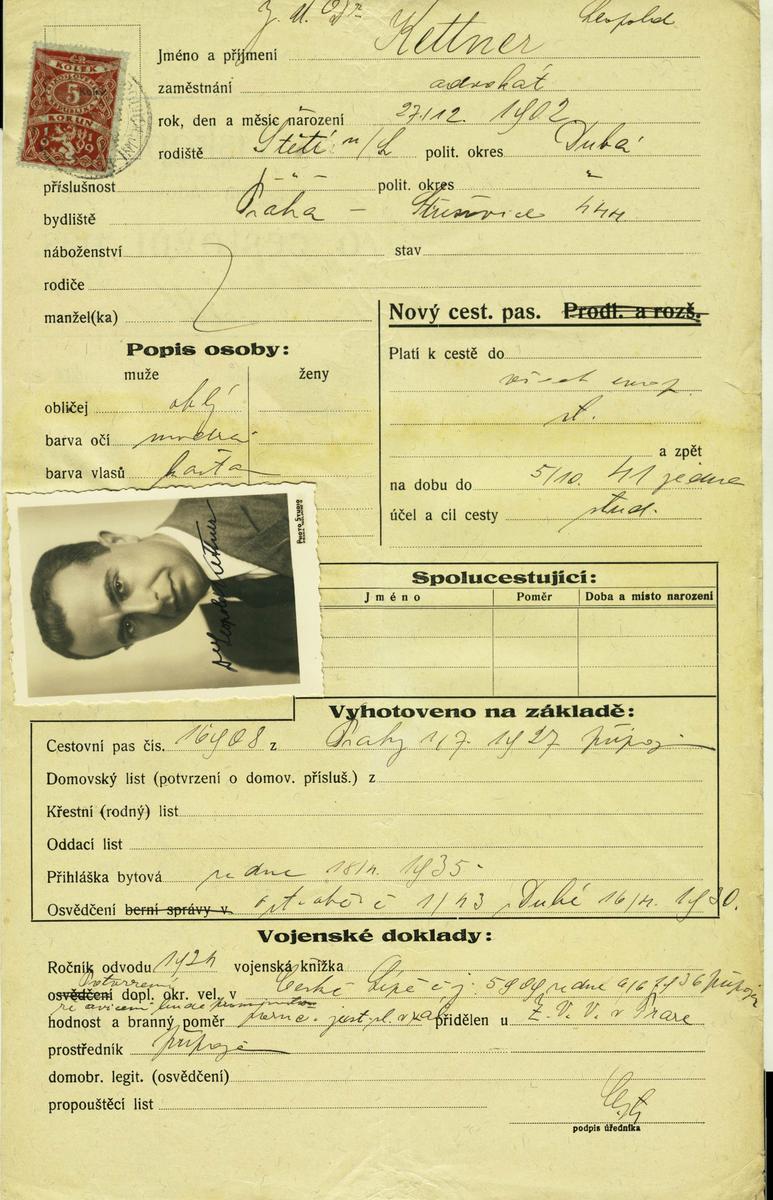 J. U. Dr. Kettner Leopold
Jméno a příjmení
KOLEK
5
KORUN
zaměstnání advokát
rok, den a měsíc narození 27/12. 1902
rodiště Štětí n/L polit. okres Dubá
příslušnost - " - polit. okres "
bydliště Praha - Střešovice 444
náboženství stav
rodiče
manžel(ka)
Nový cest. pas. Prodl. a rozš.
Popis osoby:
muže ženy
obličej oblý
barva očí modrá
barva vlasů kašta
Platí k cestě do
všech evrop.
st.
a zpět
na dobu do 5/10. 41
účel a cíl cesty stud.
Photo Studio
Dr Leopold Kettner
Spolucestující:
Jméno Poměr Doba a místo narození
Vyhotoveno na základě:
Cestovní pas čís. 16908 z Prahy 1/7. 1927 připoj
Domovský list (potvrzení o domov. přísluš.) z
Křestní (rodný) list
Oddací list
Přihláška bytová ze dne 18/4. 1935
Osvědčení berní správy v 1/43 Dubé 16/4. 1930.
Vojenské doklady:
Ročník odvodu 1924 vojenská knížka
Potvrzení
osvědčení dopl. okr. vel. v České Lípě čj. 5909 ze dne 6/6 1936 připoje
hodnost a branný poměr přidělen u Z. V. V. v Praze
prostředník připoje
domobr. legit. (osvědčení)
propouštěcí list
podpis úředníka